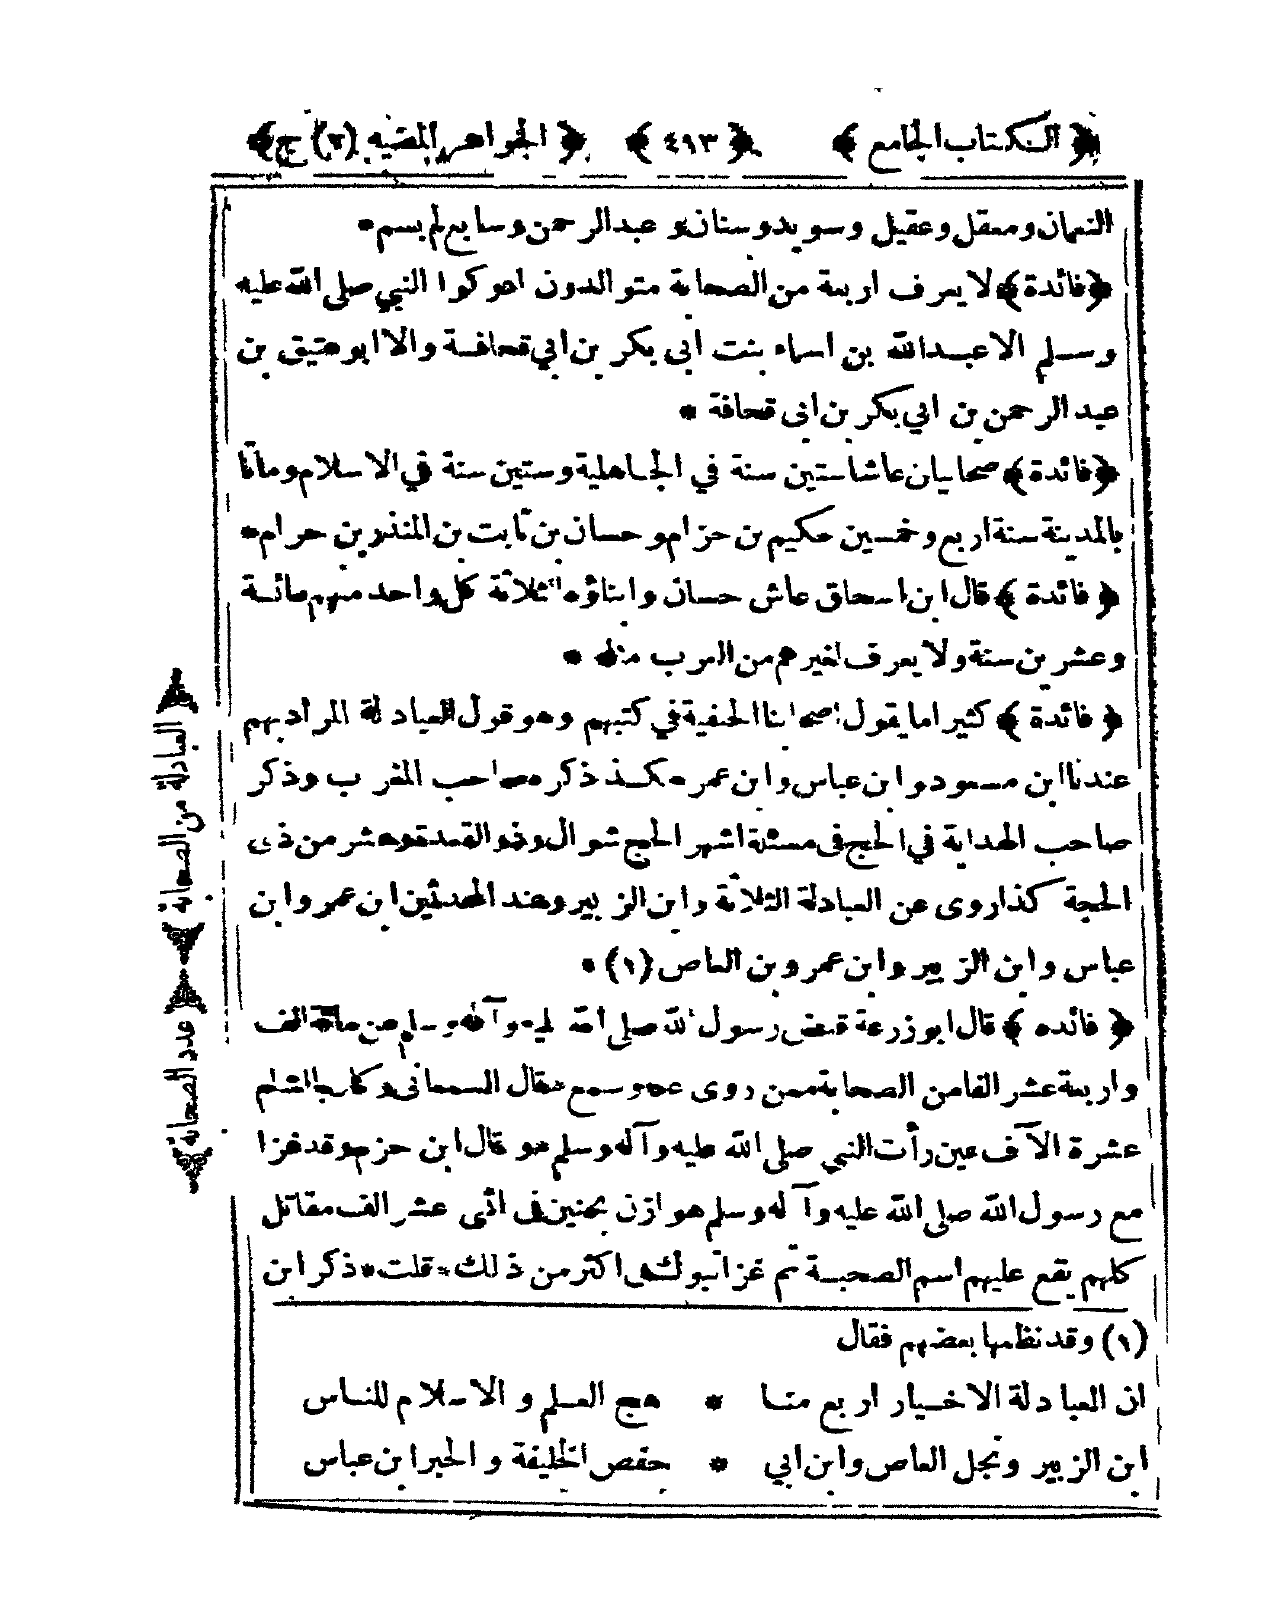 ﴿ الكتاب الجامع ﴾ ﴿ ٤٩٣ ﴾ ﴿ الجواهر المضيه (٢) ج ﴾
النعمان ومعقل وعقيل وسويد وسنان و عبد الرحمن وسابع لم يسم *
﴿ فائدة ﴾ لا يعرف اربعة من الصحابة متوالدون ادركوا النبي صلى الله عليه
وسلم الا عبد الله بن اسماء بنت ابى بكر بن ابي قحافة والا ابو عتيق بن
عبد الرحمن بن ابي بكر بن ابى قحافة *
﴿ فائدة ﴾ صحابيان عاشا ستين سنة في الجاهلية وستين سنة في الاسلام وماتا
بالمدينة سنة اربع وخمسين حكيم بن حزام و حسان بن ثابت بن المنذر بن حرام *
﴿ فائدة ﴾ قال ابن اسحاق عاش حسان وابناؤه الثلاثة كل واحد منهم مائة
وعشرين سنة ولا يعرف لغيرهم من العرب مثله *
﴿ فائدة ﴾ كثيرا ما يقول اصحابنا الحنفية في كتبهم وهو قول العبادلة المراد بهم
عندنا ابن مسعود و ابن عباس وابن عمر هكذ ذكره صاحب المغرب وذكر
صاحب الهداية في الحج في مسئلة اشهر الحج شوال وذو القعدة وعشر من ذى
الحجة كذا روى عن العبادلة الثلاثة وابن الزبير وعند المحدثين ابن عمر وابن
عباس وابن الزبير وابن عمر وبن العاص (١) *
﴿ فائده ﴾ قال ابو زرعة قبض رسول الله صلى الله عليه وآله وسلم عن مائة الف
واربعة عشر الفا من الصحابة ممن روى عنه وسمع فقال السمعانى وكان بالشام
عشرة الآف عين رأت النبي صلى الله عليه وآله وسلم * و قال ابن حزم وقد غزا
مع رسول الله صلى الله عليه وآله وسلم هوازن بحنين فى اثنى عشر الف مقاتل
كلهم يقع عليهم اسم الصحبة ثم غزا تبوك فى اكثر من ذلك * قلت * ذكر ابن
(١) وقد نظمها بعضهم فقال
ان العبادلة الاخيار اربع منا * هج العلم و الاسلام للناس
ابن الزبير ونجل العاص وابن ابي * حفص الخليفة و الحبر ابن عباس
﴿ العبادلة من الصحابة ﴾
﴿ عدد الصحابة ﴾